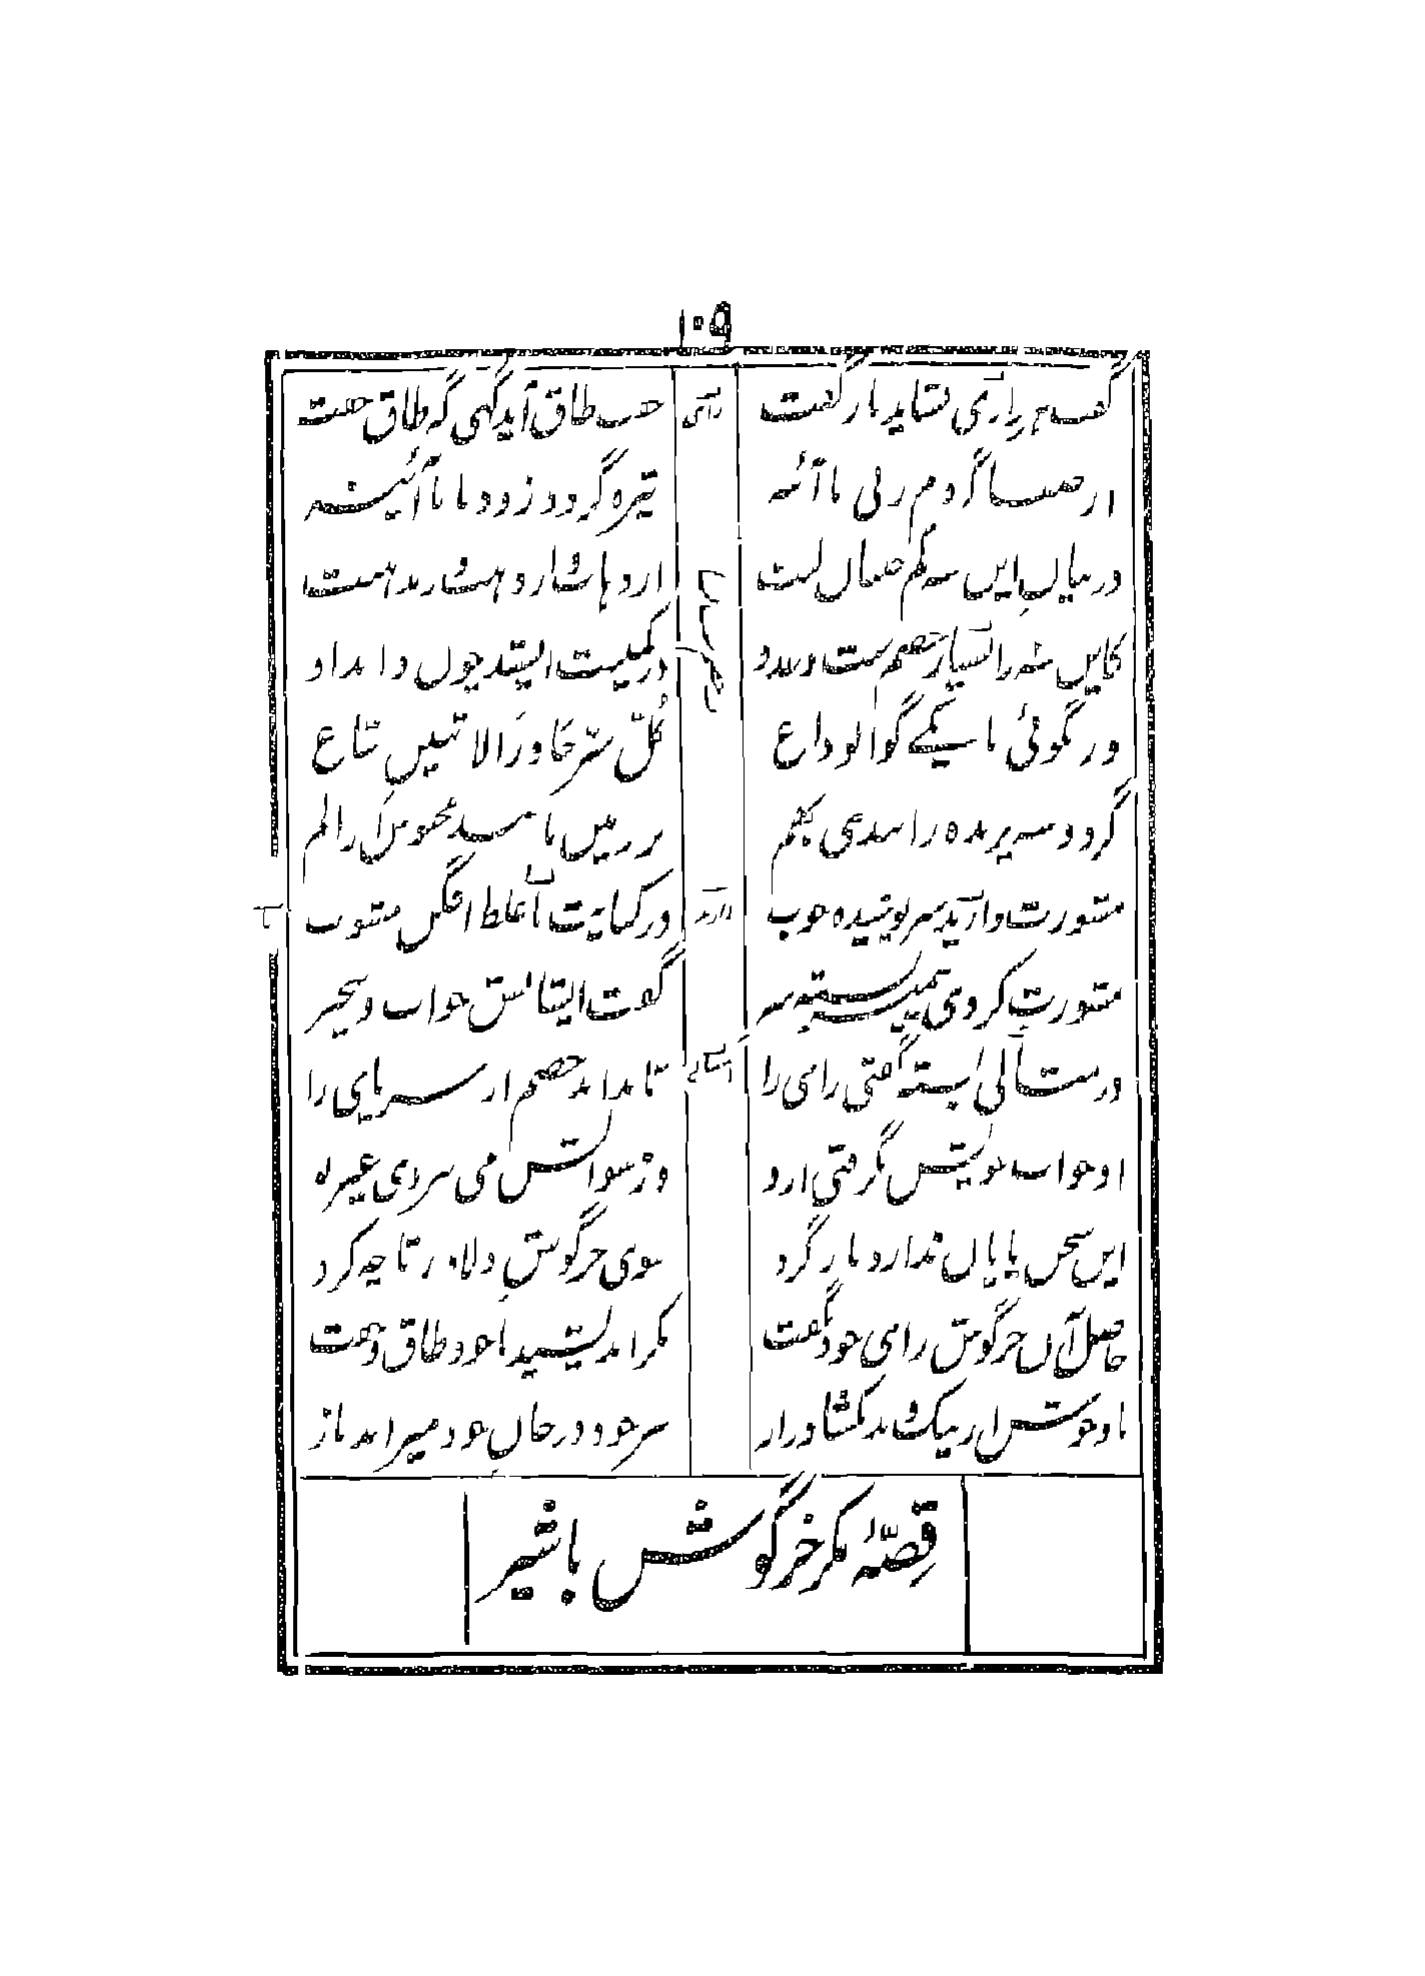 ۱۰۹
گفت هر رازی نشاید باز گفت جفت طاق آید گهی گه طاق جفت
از صفا گر دم زنی با آئنه تیره گردد زود با ما آئینه
در بیان این سه کم جنبان لبت از ذهاب و از ذهب وز مذهبت
کاین سه را بسیار خصم ست و عدو در کمینت ایستد چون داند او
ور بگوئی با یکے گو الوداع کُلّ سّرٍ جَاوَزَ الاثنین شاع
گر دو سه پرنده را بندی بهم بر زمین مانند محبوس از الم
مشورت دارند سرپوشیده خوب در کنایت با غلط افگن مشوب
مشورت کردی پیمبر بسته سر گفت ایشانش جواب و بیخبر
در مثالی بسته گفتی رای را تا نداند خصم از سر پای را
او جواب خویش بگرفتی ازو وز سوالش می نبردی غیر بو
این سخن پایان ندارد باز گرد سوی خرگوش دلاور تا چه کرد
حاصل آن خرگوش رای خود نگفت مکر اندیشید با خود طاق و جفت
با وحوش از نیک و بد نگشاد راز سر خود در جان خود میراند باز
قصّهٔ مکر خرگوش با شیر